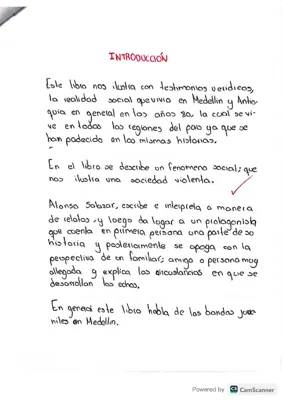 INTRODUCCIÓN
Este libro nos ilustra con testimonios veridicos,
la realidad social que vivio en Medellin y Antio-
quia en general en los años 80, la cual se vi-
ve en todas las regiones del pais ya que se
han padecido en las mismas historias.
En el libro se describe un fenomeno social; que
nos ilustra una sociedad violenta.
Alonso Salazar, escribe e interpreta a manera
de relatos, y luego da lugar a un protagonista
que cuenta en primera persona una parte de su
historia y posteriormente se apoya con la
perspectiva de un familiar; amigo o persona muy
allegada y explica las circustancias en que se
desarrollan los echos.
En general este libro habla de las bandas juve
niles en Medellin.
Powered by CS CamScanner